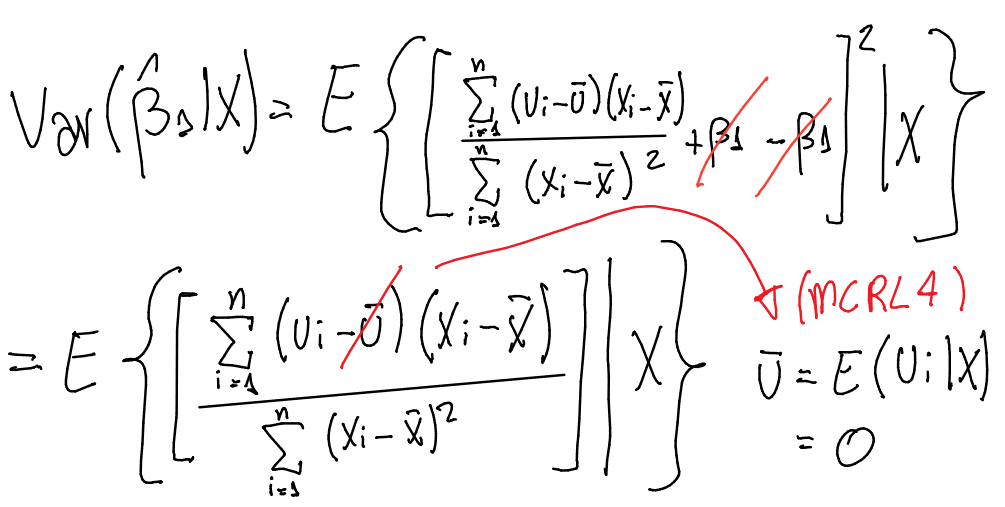 Var(β̂₁|X) = E { [ \frac{\sum_{i=1}^{n} (Ui - Ū)(Xi - X̄)}{\sum_{i=1}^{n} (Xi - X̄)^2} + β₁ - β₁ ]^2 | X }
= E { [ \frac{\sum_{i=1}^{n} (Ui - Ū)(Xi - X̄)}{\sum_{i=1}^{n} (Xi - X̄)^2} ] | X }
(MCRL4)
Ū = E(Ui|X)
= 0